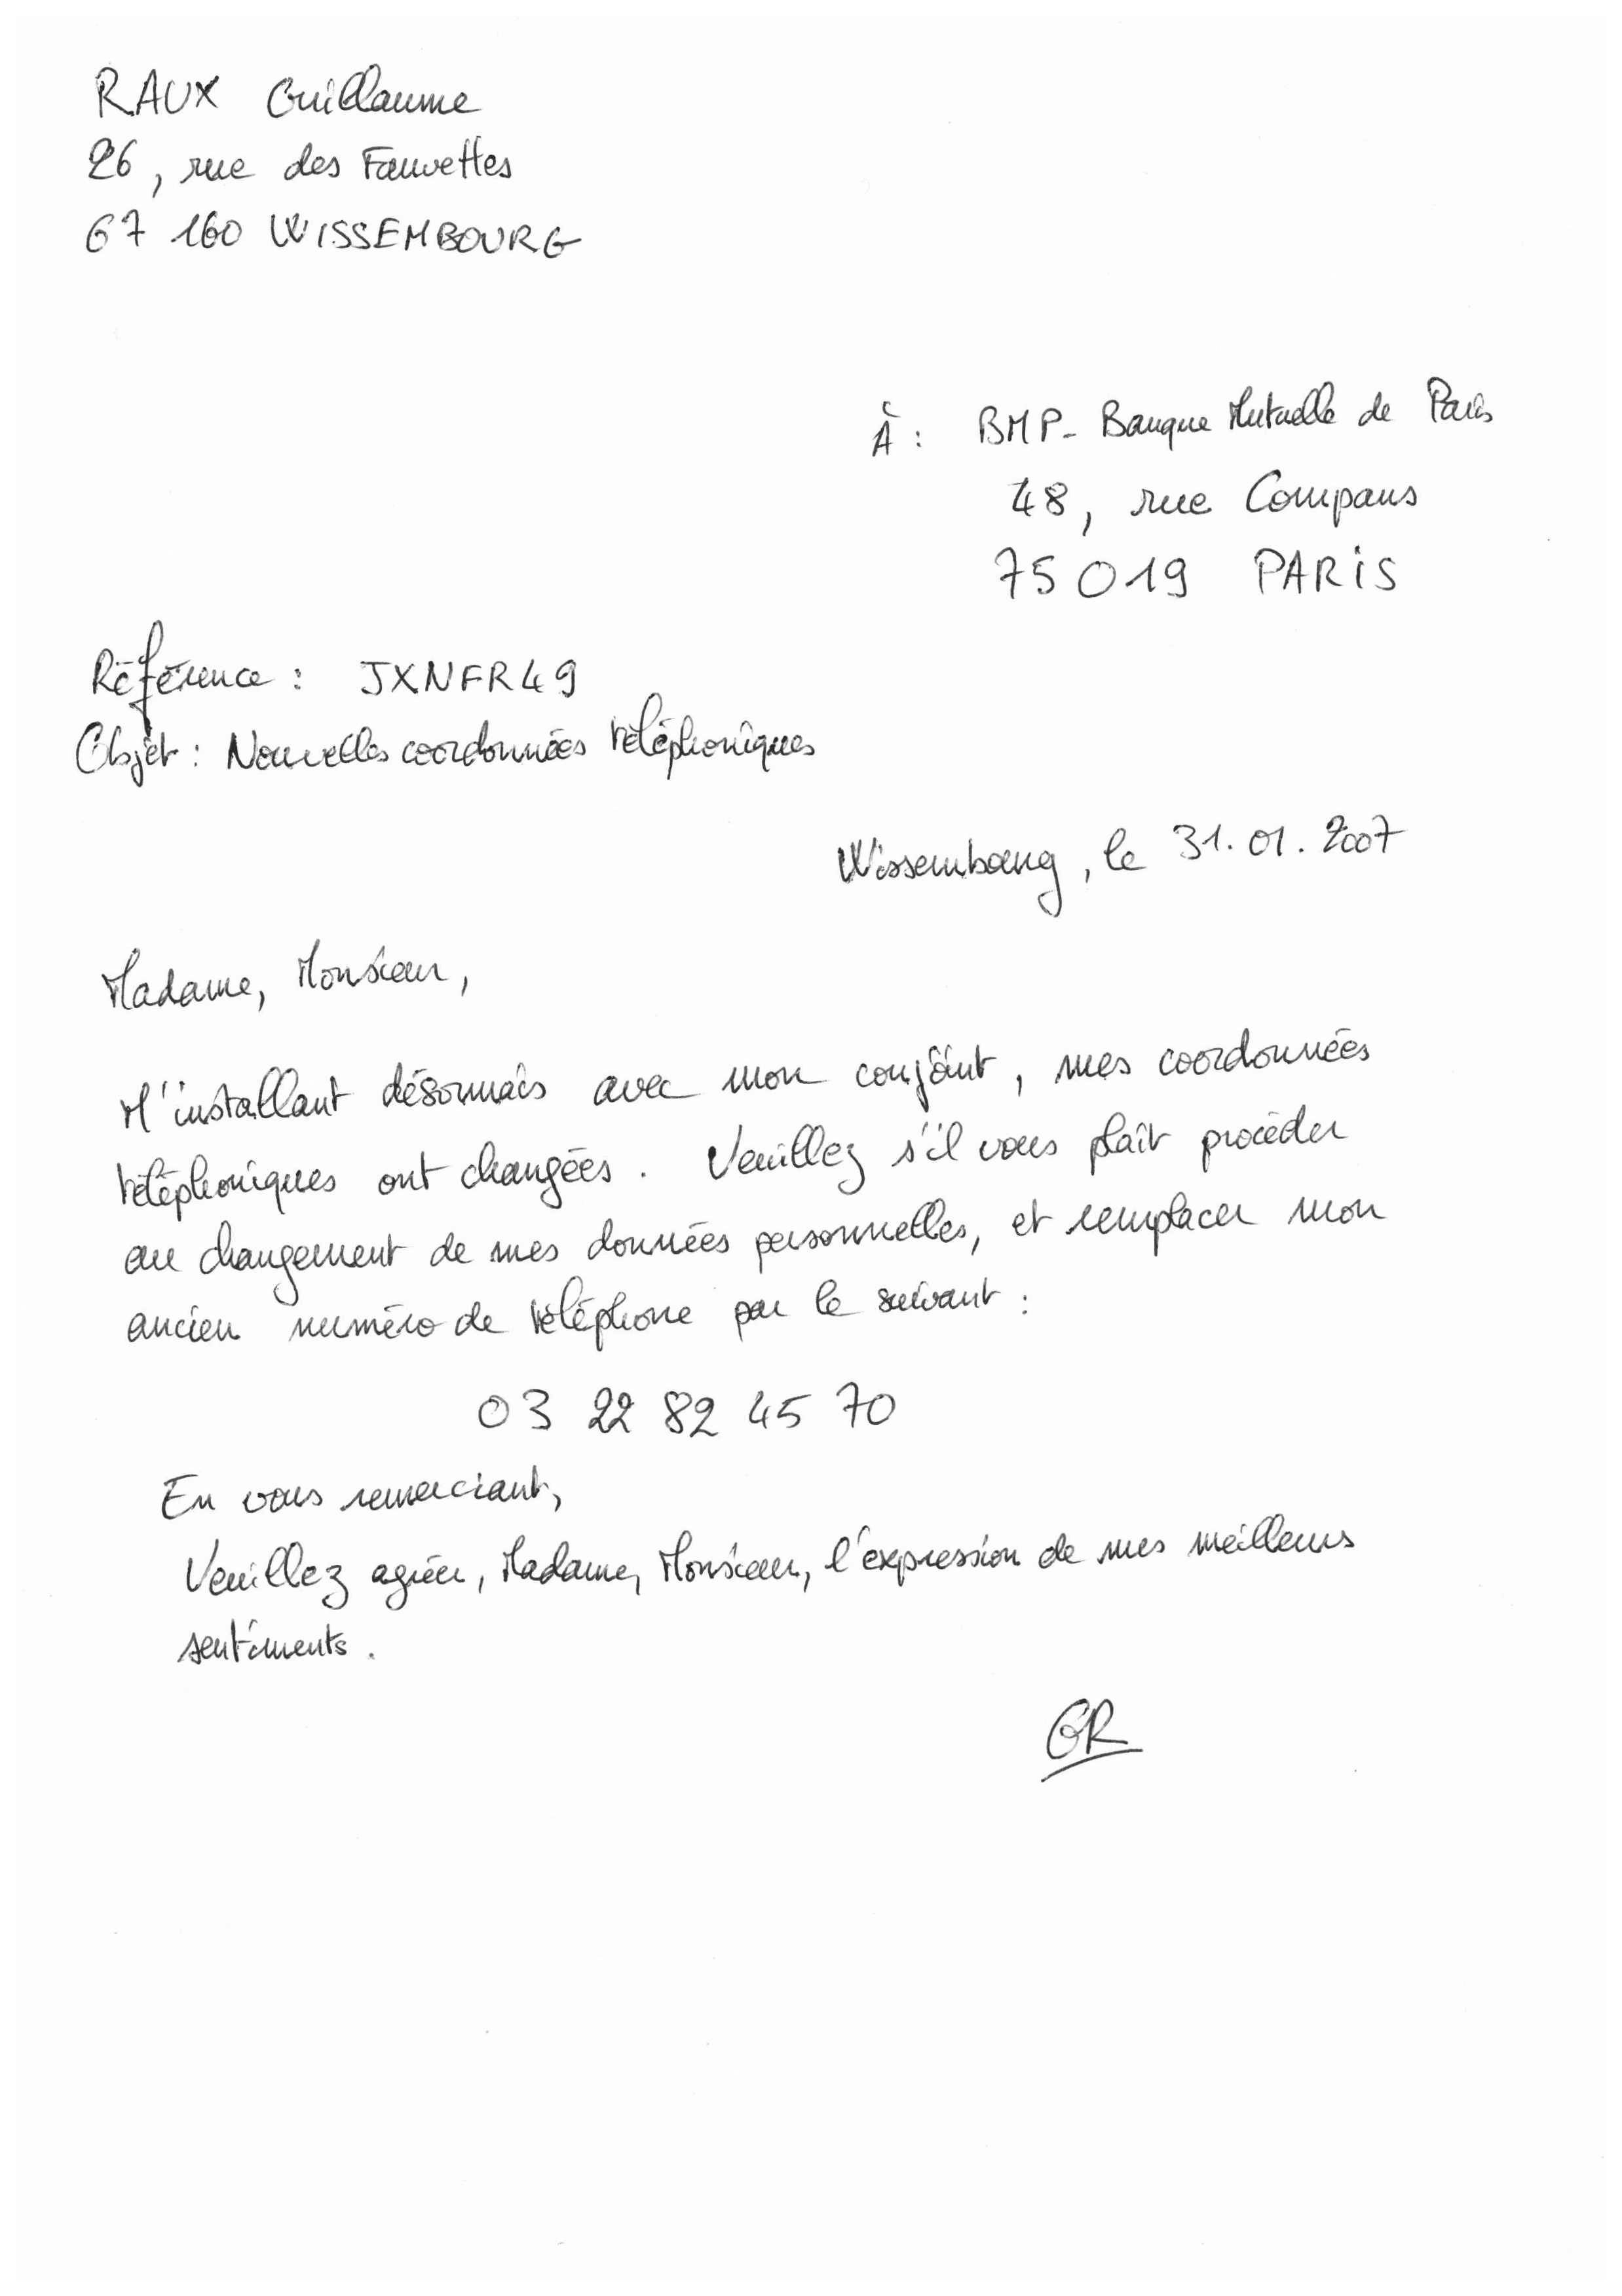 RAUX Guillaume
26, rue des Fauvettes
67 160 WISSEMBOURG
À : BMP - Banque Mutuelle de Paris
48, rue Compans
75 019 PARIS
Référence : JXNFR49
Objet : Nouvelles coordonnées téléphoniques
Wissembourg, le 31.01.2007
Madame, Monsieur,
M'installant désormais avec mon conjoint, mes coordonnées
téléphoniques ont changées. Veuillez s'il vous plaît procéder
au changement de mes données personnelles, et remplacer mon
ancien numéro de téléphone par le suivant :
03 22 82 45 70
En vous remerciant,
Veuillez agréer, Madame, Monsieur, l'expression de mes meilleurs
sentiments.
GR